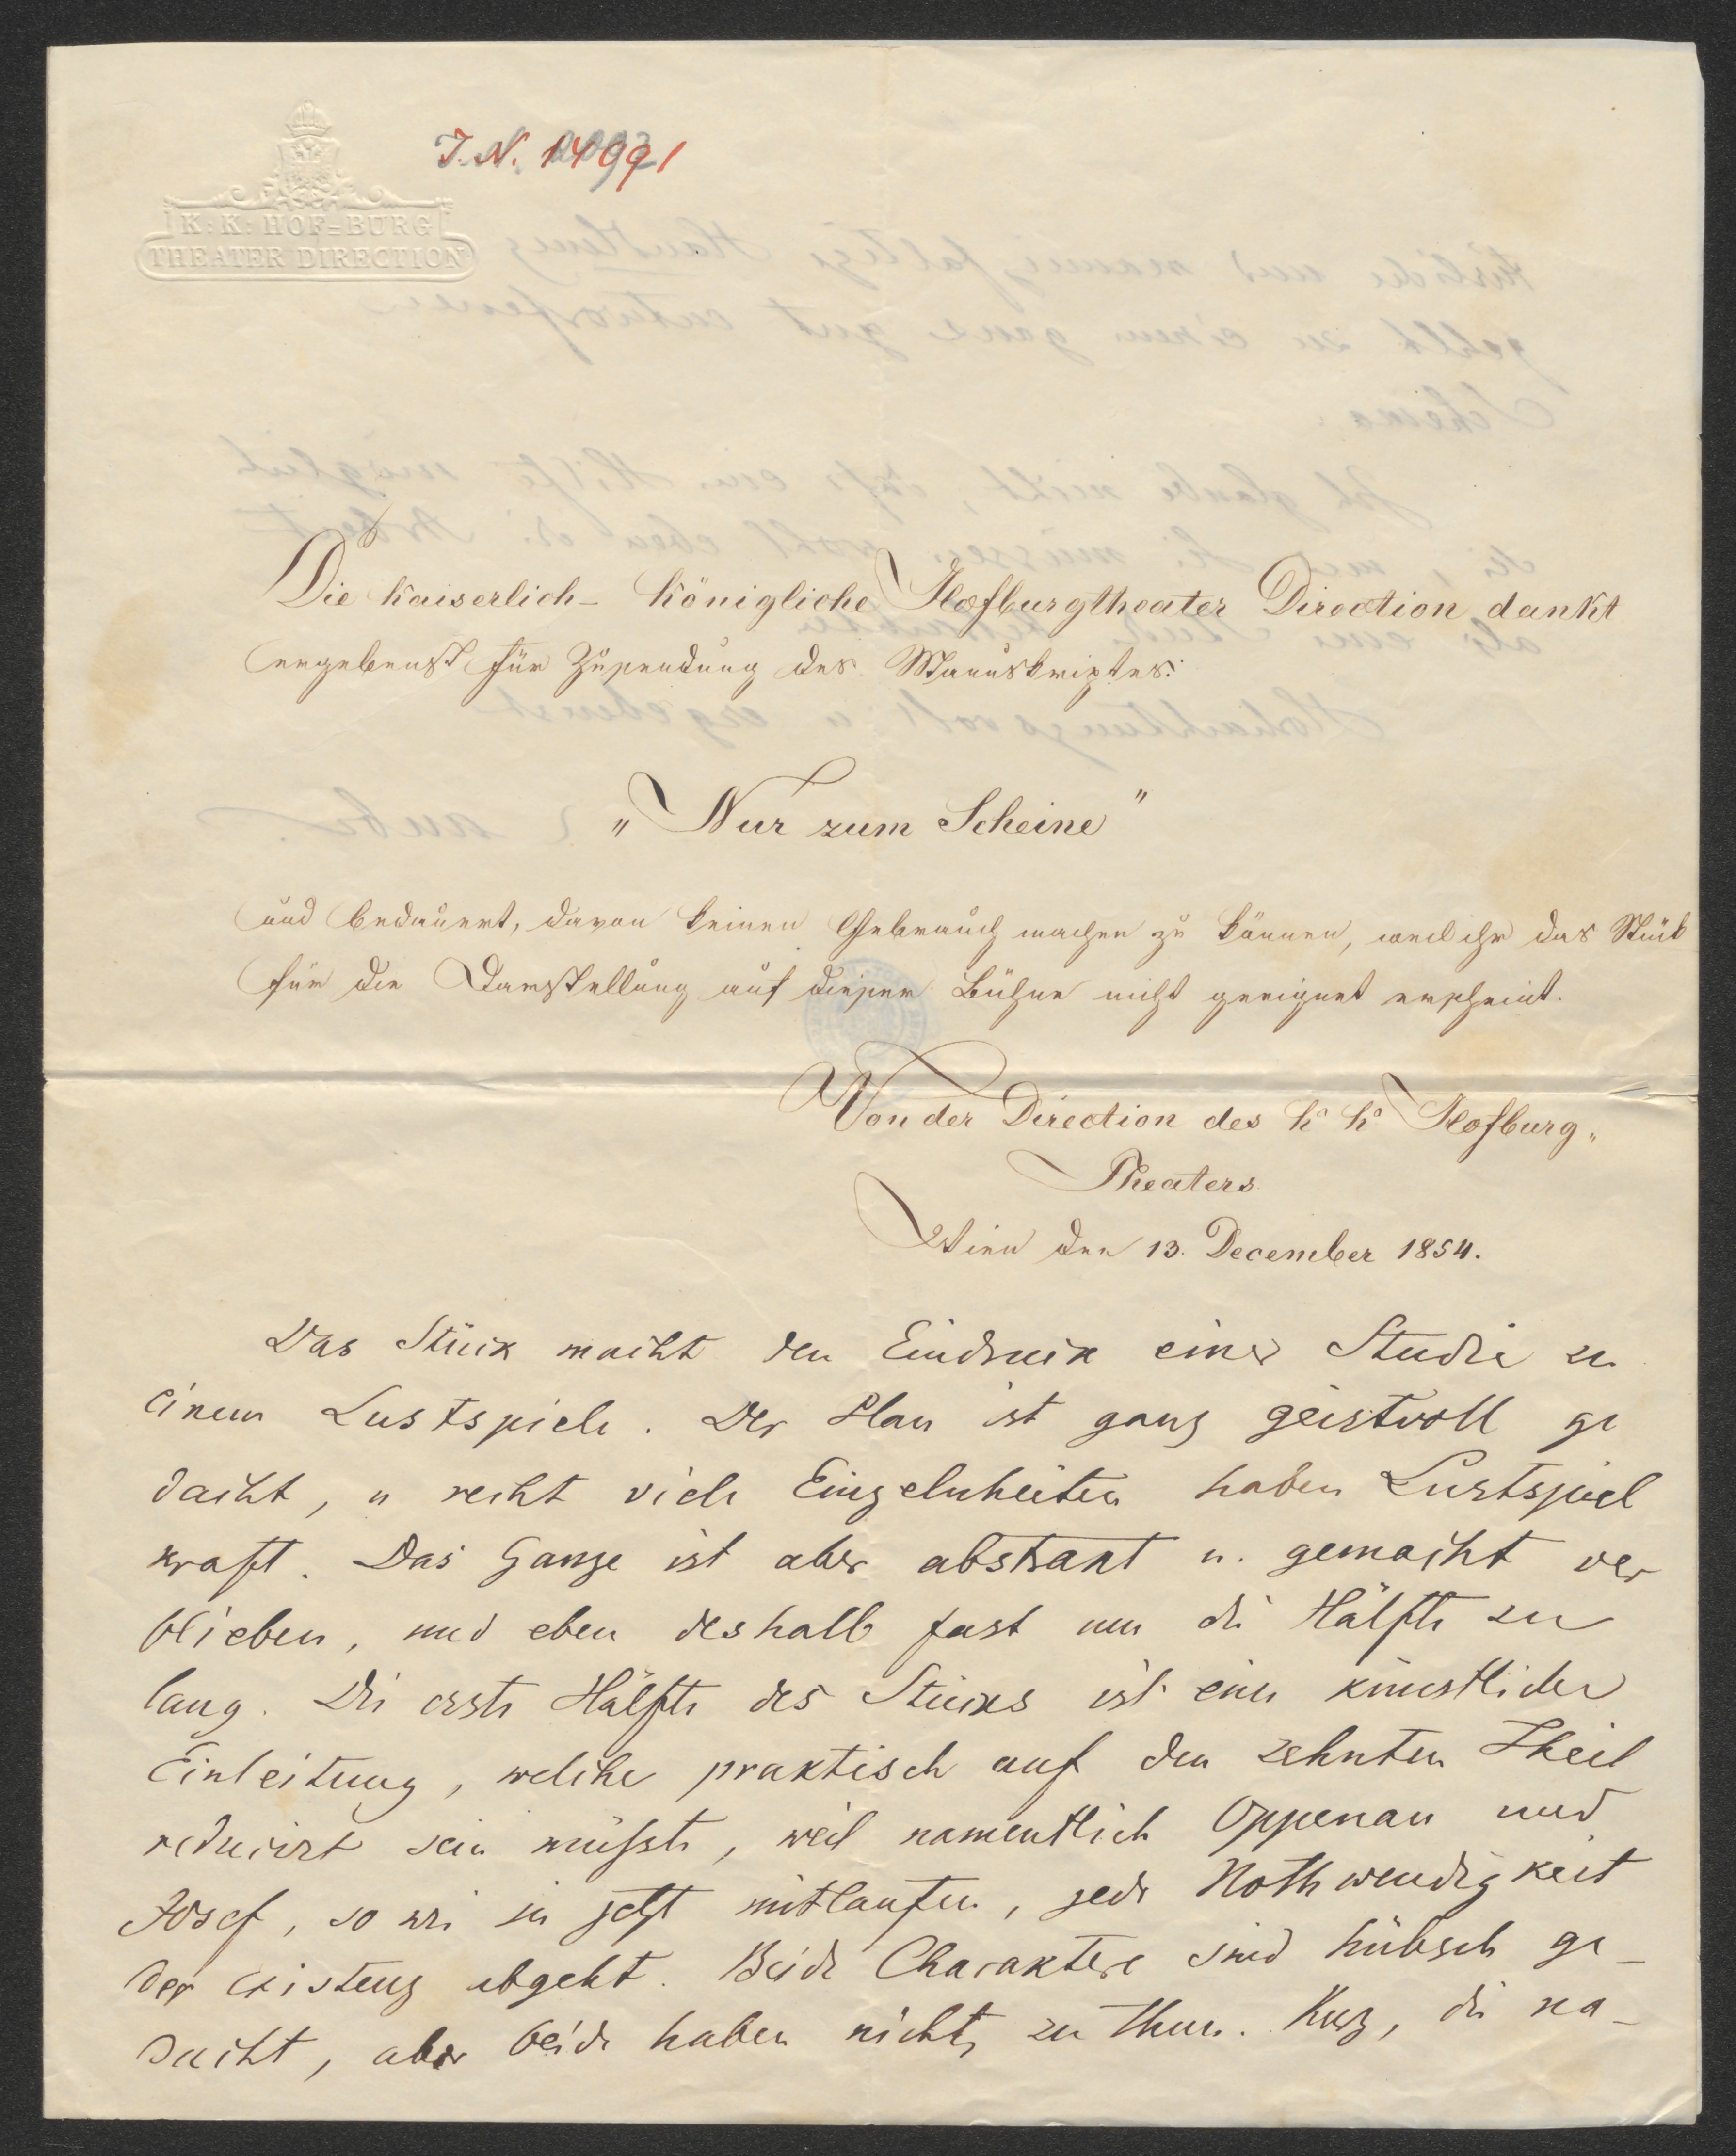 J. N. 14991
K: K: HOF-BURG
THEATER DIRECTION
Die kaiserlich-königliche Hofburgtheater Direction dankt
ergebenst für Zusendung des Manuskriptes:
„Nur zum Scheine"
und bedauert, davon keinen Gebrauch machen zu können, weil ihr das Stück
für die Darstellung auf dieser Bühne nicht geeignet erscheint.
Von der Direction des k. k. Hofburg„
Theaters
Wien den 13. December 1854.
Das Stück macht den Eindruck einer Studie zu
einem Lustspiele. Der Plan ist ganz geistvoll ge
dacht, u recht viele Einzelnheiten haben Lustspiel
kraft. Das Ganze ist aber abstrakt u. gemacht ver
blieben, und eben deshalb fast um die Hälfte zu
lang. Die erste Hälfte des Stücks ist eine künstliche
Einleitung, welche praktisch auf den zehnten Theil
reducirt sein müßte, weil namentlich Oppenau und
Josef, so wie sie jetzt mitlaufen, jede Nothwendigkeit
der Existenz abgeht. Beide Charaktere sind hübsch ge-
dacht, aber beide haben nichts zu thun. Kurz, die na-